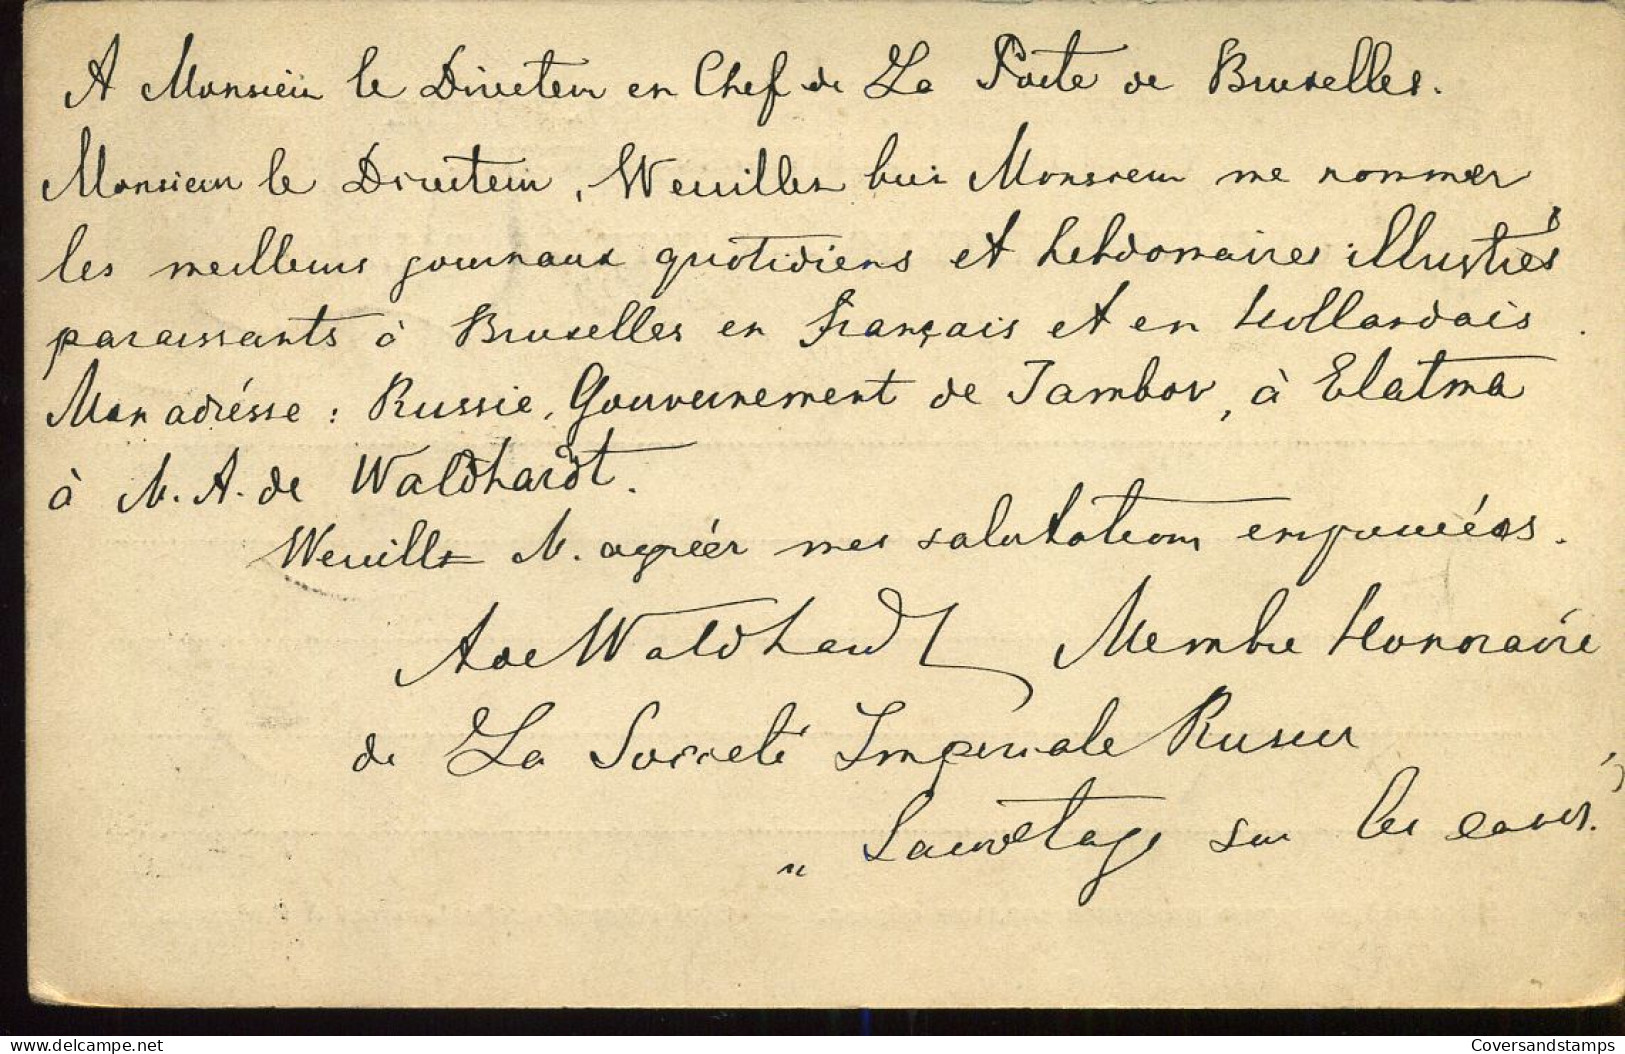 A Monsieur le Directeur en Chef de La Poste de Bruxelles.
Monsieur le Directeur, Veuillez Monsieur me nommer
les meilleurs journaux quotidiens et hebdomaires illustrés
paraissants à Bruxelles en français et en Hollandais.
Mon adrésse : Russie, Gouvernement de Tambov, à Elatma
à M. A. de Waldhardt.
Veuillz M. agréér mes salutations empressées.
A de Waldhardt Membre Honoraire
de La Societé Imperiale Russe
„ Sauvetage sur les eaux."
Coversandstamps